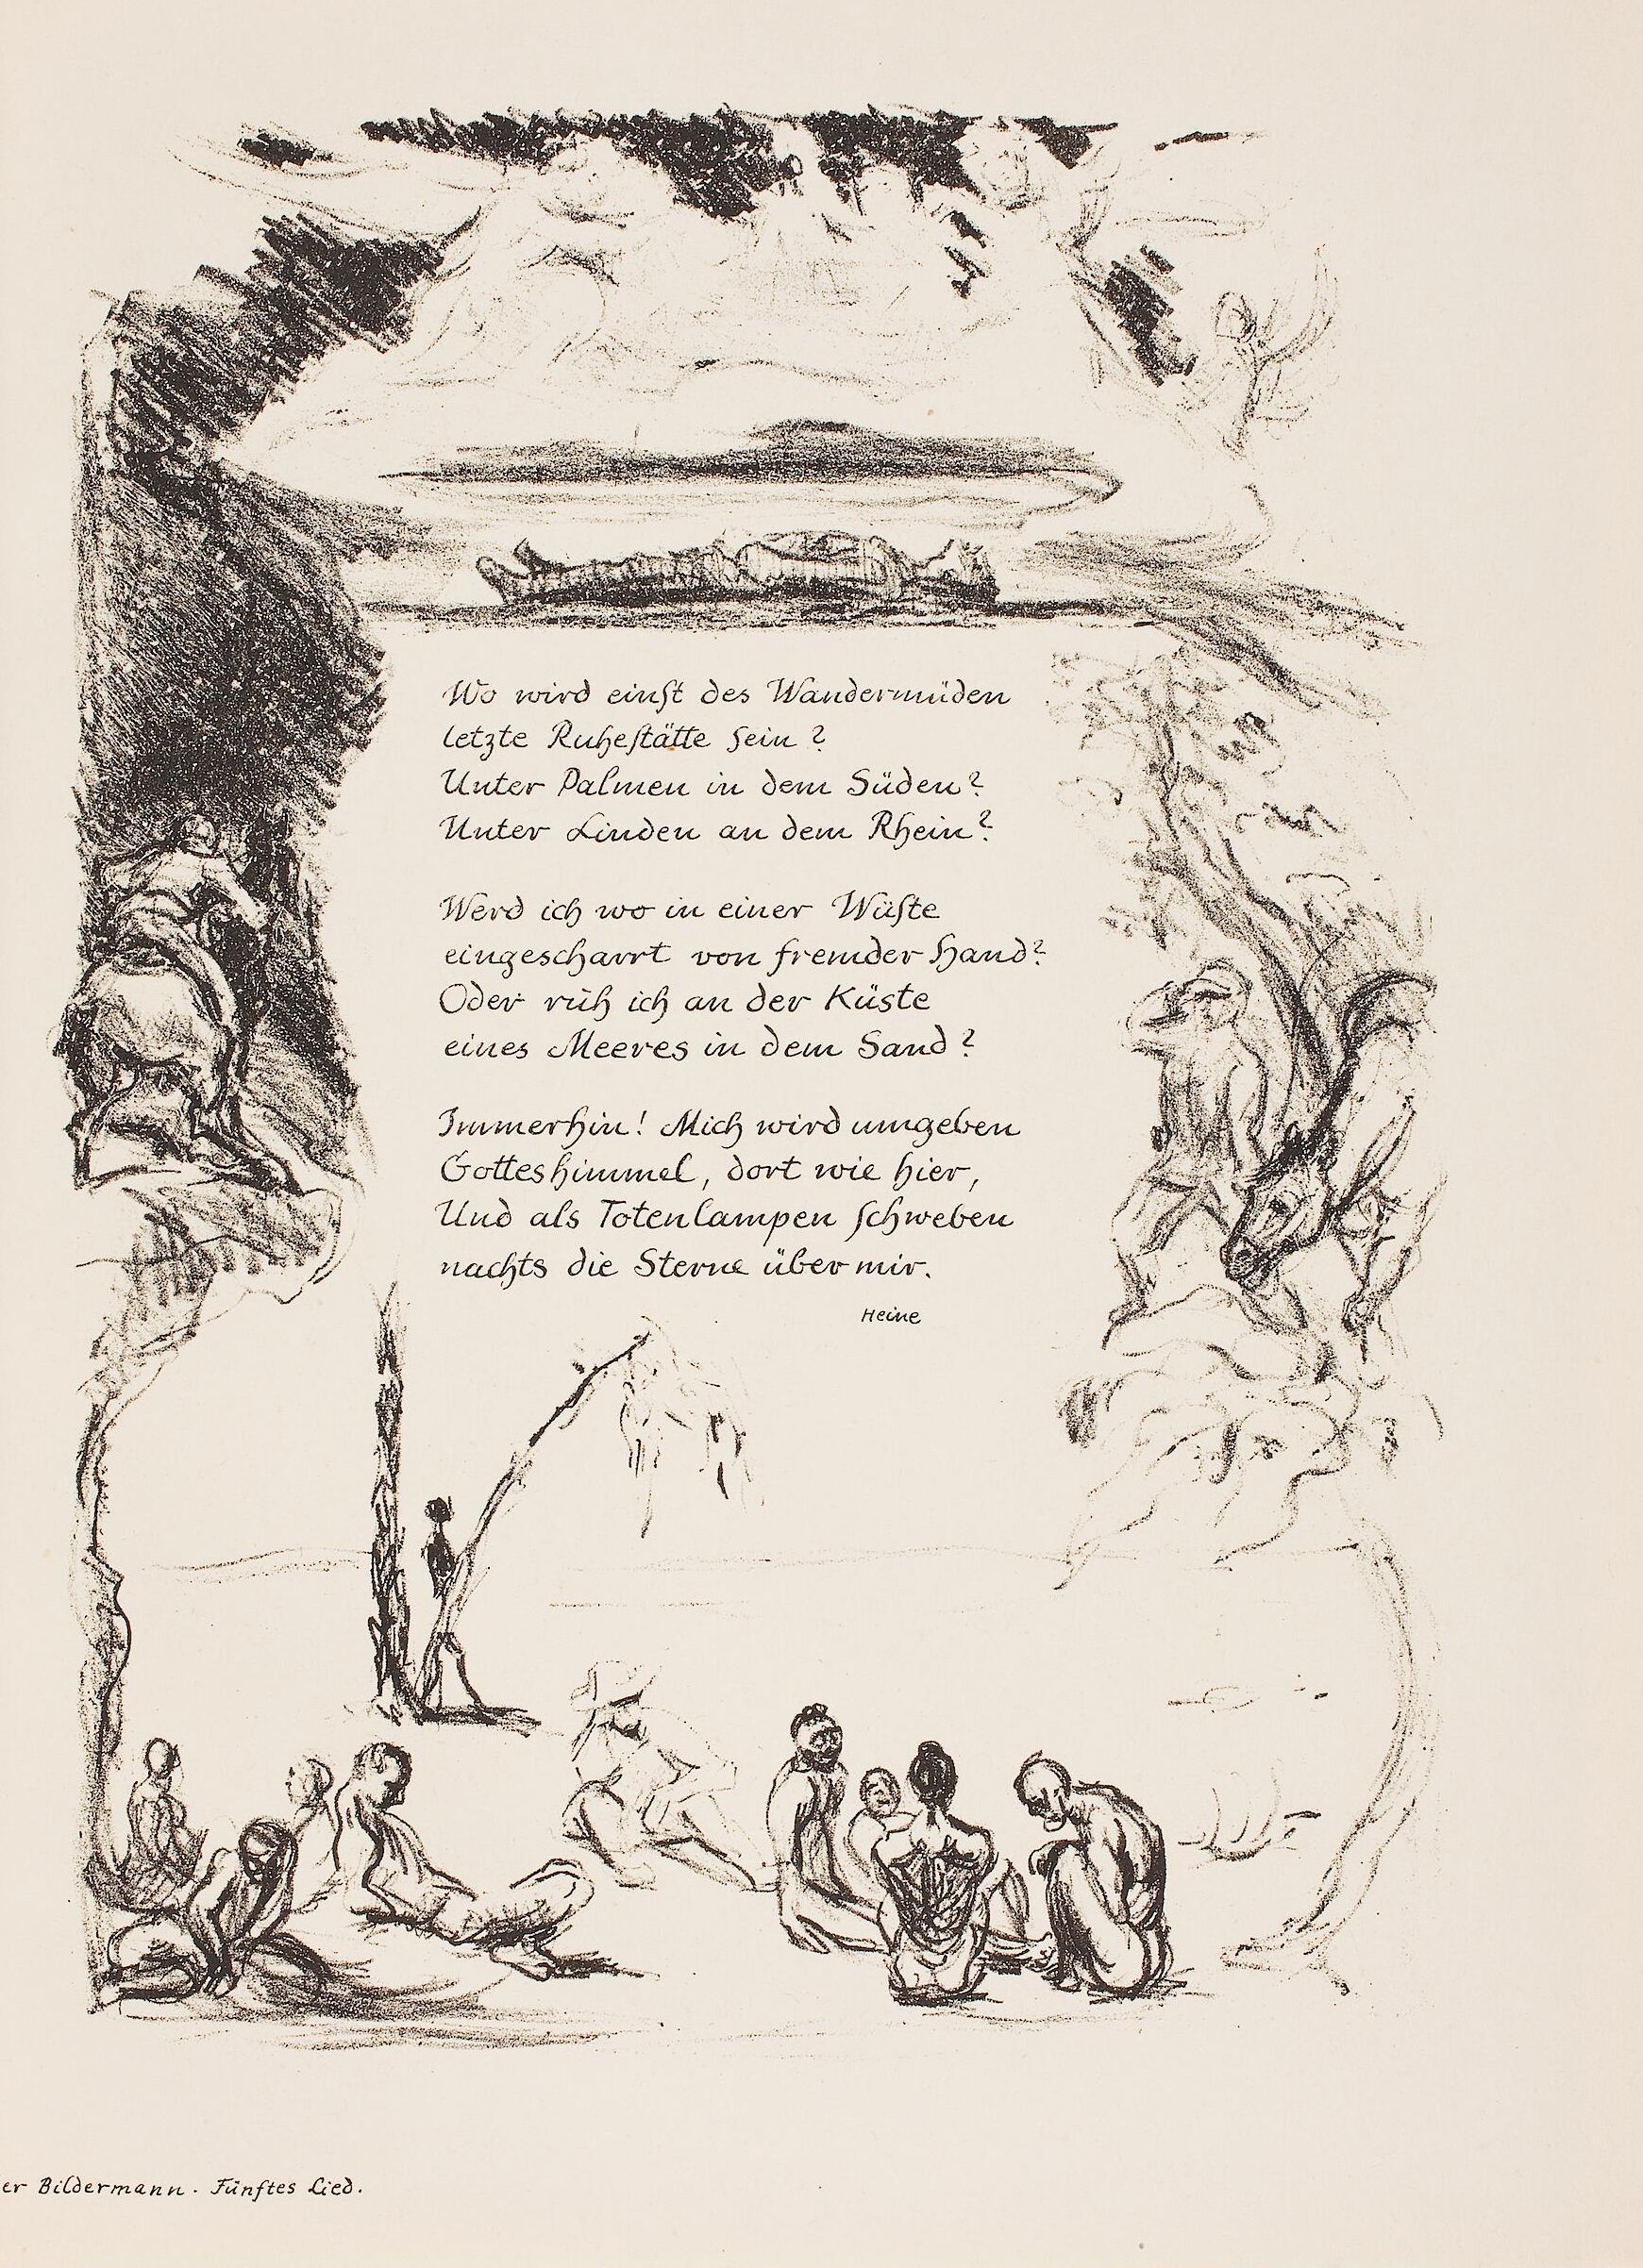 Wo wird einst des Wandermüden
letzte Ruhestätte sein?
Unter Palmen in dem Süden?
Unter Linden an dem Rhein?
Werd ich wo in einer Wüste
eingescharrt von fremder Hand?
Oder ruh ich an der Küste
eines Meeres in dem Sand?
Immerhin! Mich wird umgeben
Gotteshimmel, dort wie hier,
Und als Totenlampen schweben
nachts die Sterne über mir.
Heine
er Bildermann. Fünftes Lied.